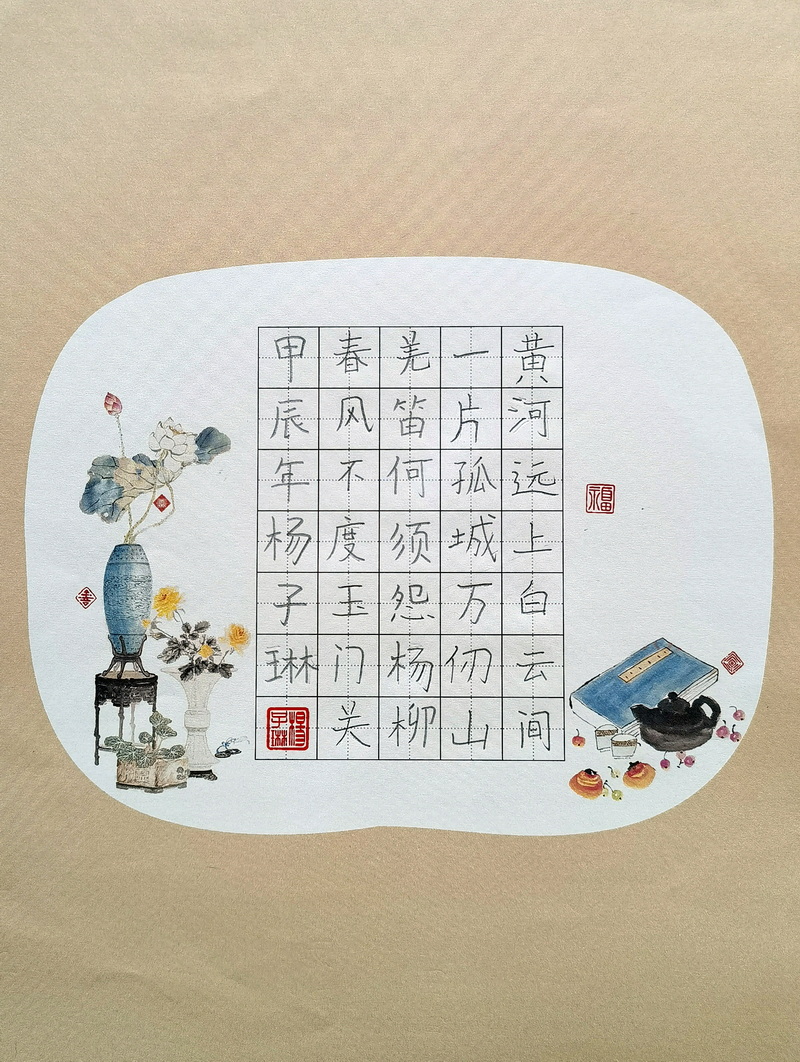 黄河远上白云间
一片孤城万仞山
羌笛何须怨杨柳
春风不度玉门关
甲辰年杨子琳
杨子琳